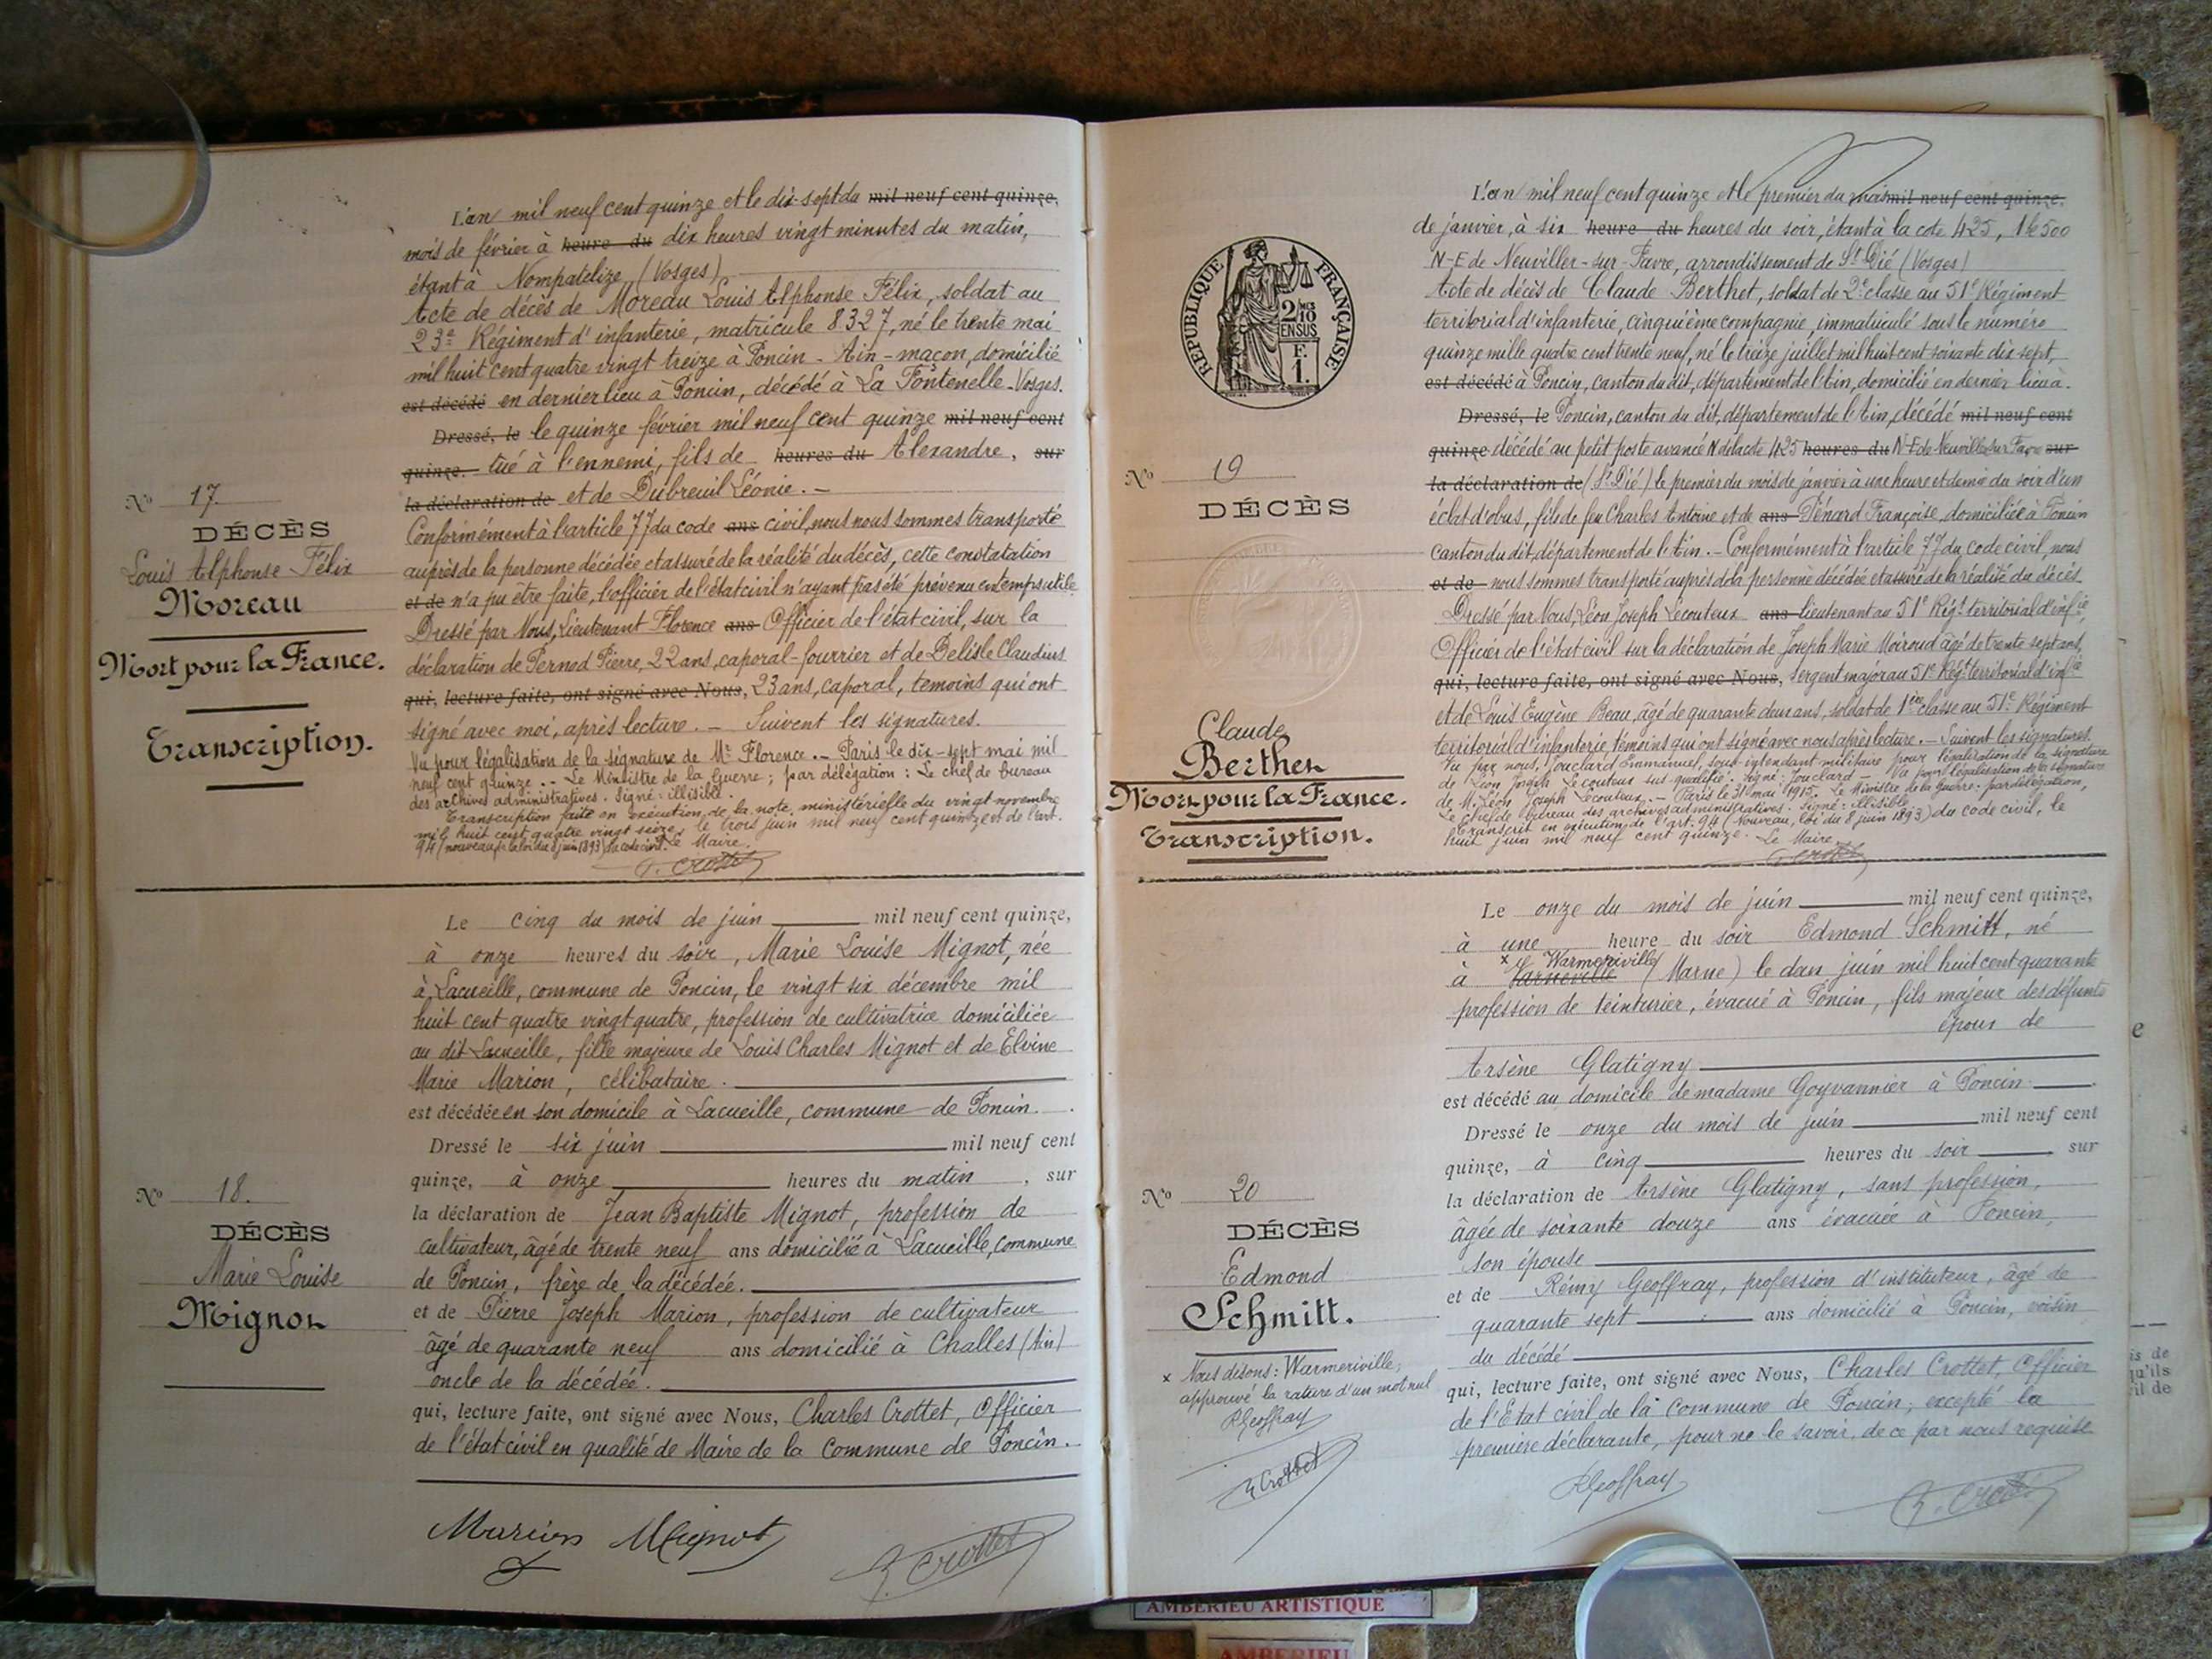 L'an mil neuf cent quinze et le dix-sept du mil neuf cent quinze,
mois de février à heure du dix heures vingt minutes du matin,
étant à Nompatelize (Vosges)
Acte de décès de Moreau Louis Alphonse Félix, soldat au
23e Régiment d'infanterie, matricule 8327, né le trente mai
mil huit cent quatre vingt treize à Poncin - Ain - maçon, domicilié
est décédé en dernier lieu à Poncin, décédé à La Fontenelle - Vosges.
Dressé, le le quinze février mil neuf cent quinze mil neuf cent
quinze. tué à l'ennemi, fils de heures du Alexandre, sur
la déclaration de et de Dubreuil Léonie. -
Conformément à l'article 77 du code ans civil, nous nous sommes transporté
auprès de la personne décédée et assuré de la réalité du décès, cette constatation
et de n'a pu être faite, l'officier de l'état civil n'ayant pas été prévenu en temps utile
Dressé par Nous, Lieutenant Florence ans Officier de l'état civil, sur la
déclaration de Pernod Pierre, 22 ans, caporal-fourrier et de Delisle Claudius
qui, lecture faite, ont signé avec Nous, 23 ans, caporal, temoins qui ont
signé avec moi, après lecture. - Suivent les signatures.
Vu pour légalisation de la signature de Mr Florence. - Paris le dix-sept mai mil
neuf cent quinze. - Le Ministre de la Guerre ; par délégation : Le chef de bureau
des archives administratives. Signé : illisible.
Transcription faite en exécution de la note ministérielle du vingt novembre
mil huit cent quatre vingt seize, le trois juin mil neuf cent quinze et de l'art.
94 (nouveau) de la loi du 8 juin 1893) du code civil. Le Maire.
Crottet
No 17.
DÉCÈS
Louis Alphonse Félix
Moreau
Mort pour la France.
Transcription.
Le cinq du mois de juin mil neuf cent quinze,
à onze heures du soir, Marie Louise Mignot, née
à Lacueille, commune de Poncin, le vingt six décembre mil
huit cent quatre vingt quatre, profession de cultivatrice domiciliée
au dit Lacueille, fille majeure de Louis Charles Mignot et de Elvine
Marie Marion, célibataire.
est décédée en son domicile à Lacueille, commune de Poncin.
Dressé le six juin mil neuf cent
quinze, à onze heures du matin, sur
la déclaration de Jean Baptiste Mignot, profession de
cultivateur, âgé de trente neuf ans domicilié à Lacueille, commune
de Poncin, frère de la décédée.
et de Pierre Joseph Marion, profession de cultivateur
âgé de quarante neuf ans domicilié à Challes (Ain)
oncle de la décédée.
qui, lecture faite, ont signé avec Nous, Charles Crottet, Officier
de l'état civil en qualité de Maire de la Commune de Poncin.
Marion Mignot Crottet
No 18.
DÉCÈS
Marie Louise
Mignot
L'an mil neuf cent quinze et le premier du mois mil neuf cent quinze.
de janvier, à six heure du heures du soir, étant à la cote 425, 1k500
N-E de Neuviller-sur-Fave, arrondissement de St Dié (Vosges)
Acte de décès de Claude Berthet, soldat de 2e classe au 51e Régiment
territorial d'infanterie, cinquième compagnie, immatriculé sous le numéro
quinze mille quatre cent trente neuf, né le treize juillet mil huit cent soixante dix sept,
est décédé à Poncin, canton du dit, département de l'Ain, domicilié en dernier lieu à.
Dressé, le Poncin, canton du dit, département de l'Ain, décédé mil neuf cent
quinze décédé au petit poste avancé N de la cote 425 heures du N-E de Neuviller sur Fave sur
la déclaration de (St Dié) le premier du mois de janvier à une heure et demie du soir d'un
éclat d'obus, fils de feu Charles Antoine et de ans Pénard Françoise, domiciliée à Poncin
canton du dit, département de l'Ain. - Conformément à l'article 77 du code civil, nous
et de nous sommes transporté auprès de la personne décédée et assuré de la réalité du décès.
Dressé par Nous, Léon Joseph Lecouteux ans lieutenant au 51e Régt territorial d'infie,
Officier de l'état civil sur la déclaration de Joseph Marie Moiroud âgé de trente sept ans,
qui, lecture faite, ont signé avec Nous, sergent major au 51e Régt territorial d'infie
et de Louis Eugène Beau, âgé de quarante deux ans, soldat de 1ère classe au 51e Régiment
territorial d'infanterie, témoins qui ont signé avec nous après lecture. - Suivent les signatures.
Vu par nous, Jouclard Emmanuel, sous-intendant militaire pour légalisation de la signature
de Léon Joseph Lecouteux sus-qualifié. Signé : Jouclard - Vu pour légalisation de la signature
de M. Léon Joseph Lecouteux. - Paris le 31 mai 1915. Le Ministre de la Guerre : par délégation,
Le chef de bureau des archives administratives. signé : illisible
Transcrit en exécution de l'art. 94 (Nouveau, loi du 8 juin 1893) du code civil, le
huit juin mil neuf cent quinze. Le Maire
Crottet
RÉPUBLIQUE FRANÇAISE
2/10 EN SUS
F. 1.
No 19
DÉCÈS
Claude
Berthet
Mort pour la France.
Transcription.
Le onze du mois de juin mil neuf cent quinze,
à une heure du soir Edmond Schmitt, né
x Warmeriville
à Varneville (Marne) le deux juin mil huit cent quarante
profession de teinturier, évacué à Poncin, fils majeur des défunts
époux de
Arsène Glatigny
est décédé au domicile de madame Goyvannier à Poncin.
Dressé le onze du mois de juin mil neuf cent
quinze, à cinq heures du soir sur
la déclaration de Arsène Glatigny, sans profession,
âgée de soixante douze ans évacuée à Poncin,
son épouse
et de Rémy Geoffray, profession d'instituteur, âgé de
quarante sept ans domicilié à Poncin, voisin
du décédé
qui, lecture faite, ont signé avec Nous, Charles Crottet, Officier
de l'Etat civil de la Commune de Poncin, excepté la
première déclarante, pour ne le savoir, de ce par nous requise
RGeoffray Crottet
No 20
DÉCÈS
Edmond
Schmitt.
x Nous disons : Warmeriville,
approuvé la rature d'un mot nul
RGeoffray
Crottet
AMBERIEU ARTISTIQUE
AMBERIEU